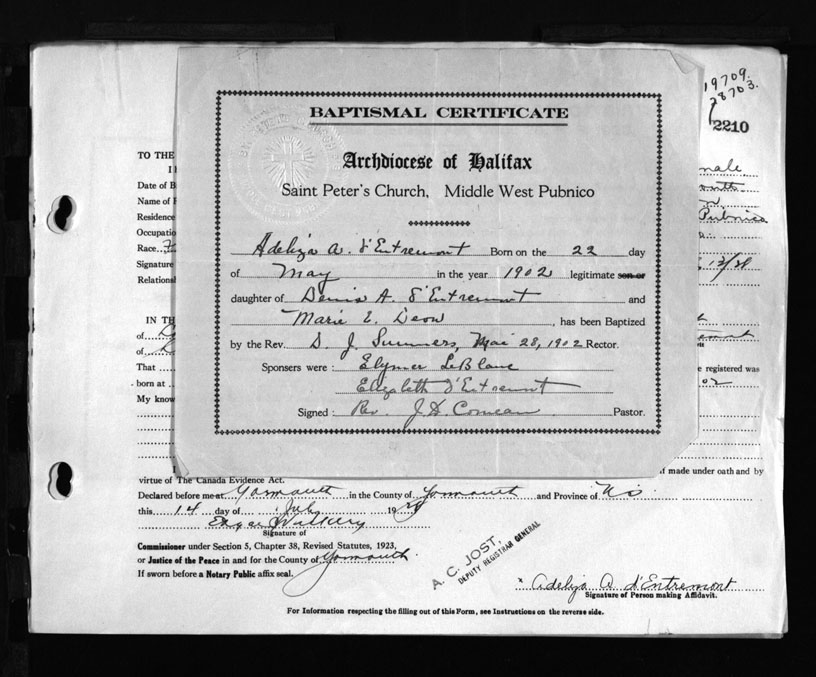 19709.
28703.
2210
BAPTISMAL CERTIFICATE
Archdiocese of Halifax
Saint Peter's Church, Middle West Pubnico
Adeliza A. d'Entremont Born on the 22 day
of May in the year 1902 legitimate son or
daughter of Denis A. d'Entremont and
Marie E. Deon, has been Baptized
by the Rev. D. J. Summers, Mai 28, 1902 Rector.
Sponsers were: Elymer LeBlanc
Elizabeth d'Entremont
Signed: Rev. J. D. Comeau Pastor.
TO THE
I
Date of B
Name of F
Residence
Pubnico
Occupatio
Race
Signature
Relations
IN TH
of
of
That
e registered was
born at
My know
if made under oath and by
virtue of The Canada Evidence Act.
Declared before me at Yarmouth in the County of Yarmouth and Province of N.S.
this 14 day of July 19
Signature of
Commissioner under Section 5, Chapter 38, Revised Statutes, 1923,
or Justice of the Peace in and for the County of Yarmouth
If sworn before a Notary Public affix seal.
A. C. JOST,
DEPUTY REGISTRAR GENERAL
x Adeliza A d'Entremont
Signature of Person making Affidavit.
For Information respecting the filling out of this Form, see Instructions on the reverse side.